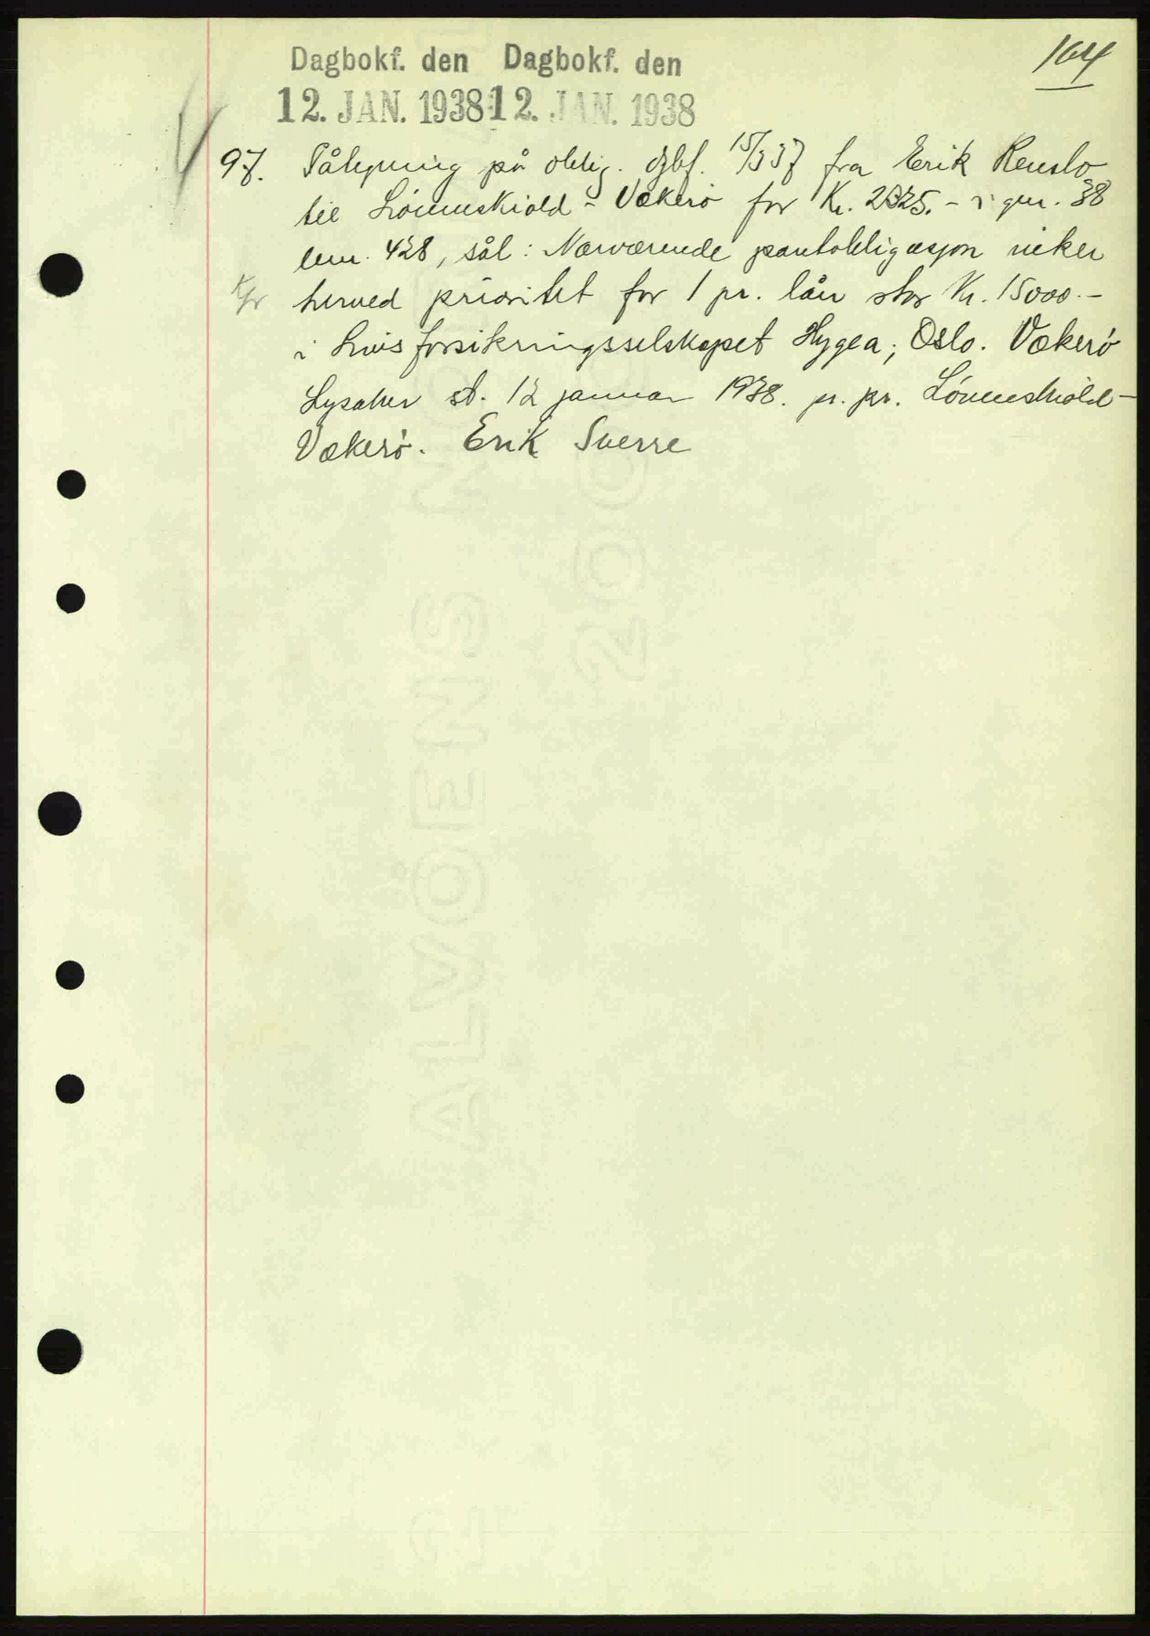 164
Dagbokf. den Dagbokf. den
12. JAN. 1938 12. JAN. 1938
97. Påtegning på oblig. dgbf. 15/3 37 fra Erik Renslo
til Lövenskiold - Vækerö for Kr. 2325.- i gnr. 38
bnr. 428, sål: Nærværende pantobligasjon viker
herved prioritet for 1 pr. lån stor Kr. 15000.-
i Livsforsikringsselskapet Hygea, Oslo. Vækerö
Lysaker st. 12 januar 1938. pr. pr. Lövenskiold-
Vækerö. Erik Sverre
ALVÖENS